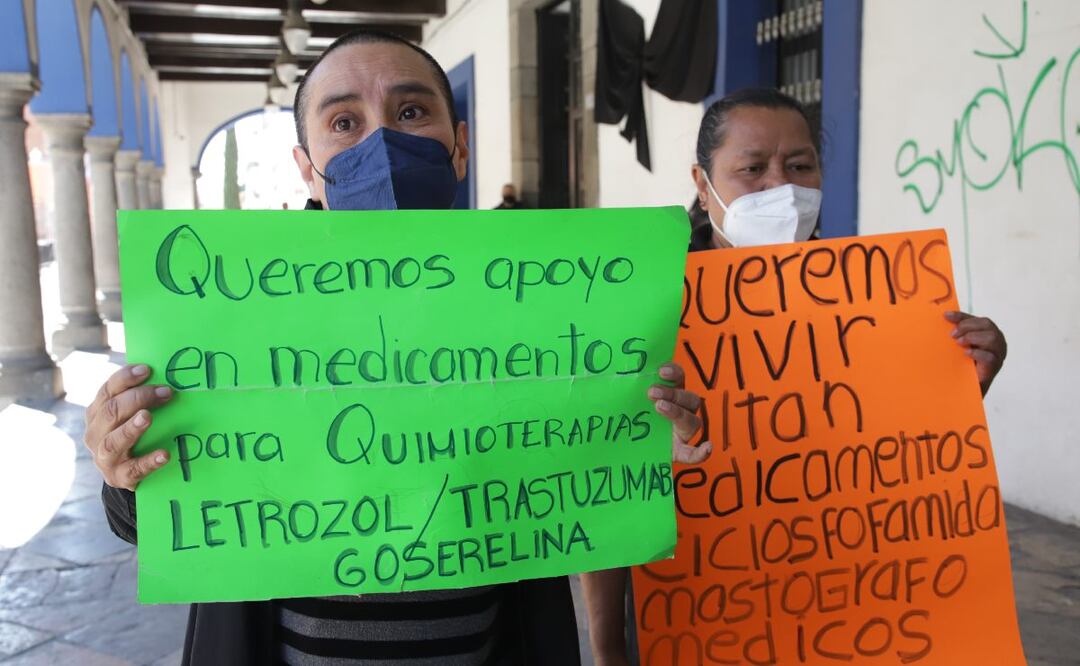 Queremos apoyo
en medicamentos
para QUIMIOTERAPIAS
LETROZOL/TRASTUZUMAB
GOSERELINA
Queremos
VIVIR
altan
edicamentos
CICLOSFOFAMIDA
mastógRAFO
medicos